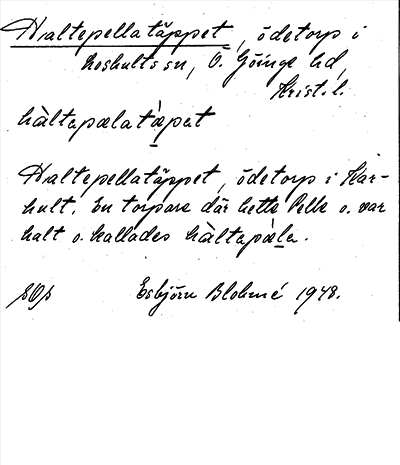 Haltepellatäppet, ödetorp i
Loshults sn, Ö. Göinge hd,
Krist. l.
hàltapælatæ̀pət
Haltepellatäppet, ödetorp i Kär-
hult. En torpare där hette Pelle o. var
halt o. kallades hàltapæ̀lə.
Esbjörn Blohmé 1948.